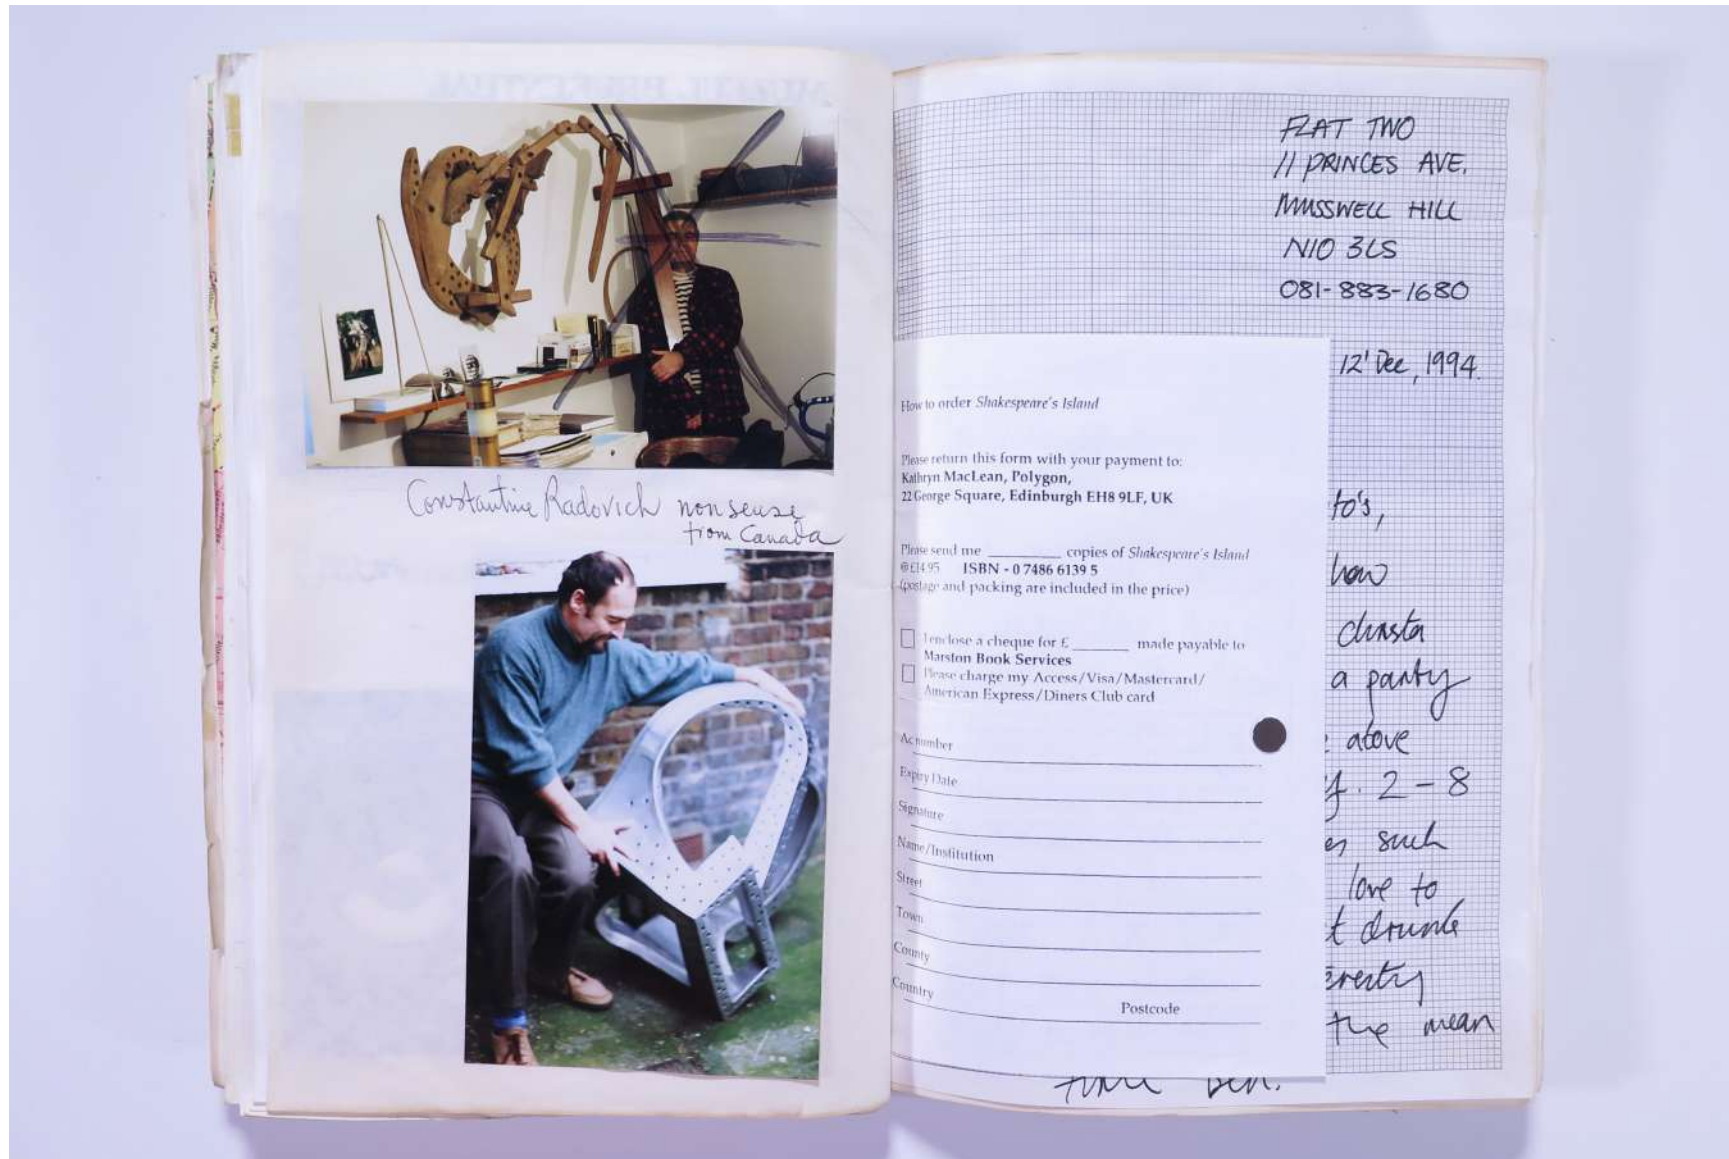 Constantine Radovich nonsense
from Canada
FLAT TWO
11 PRINCES AVE.
MUSSWELL HILL
N10 3LS
081-883-1680
12' Dec, 1994.
to's,
how
a party
above
2-8
such
love to
t drunk
the mean
time Ben.
How to order Shakespeare's Island
Please return this form with your payment to:
Kathryn MacLean, Polygon,
22 George Square, Edinburgh EH8 9LF, UK
Please send me ________ copies of Shakespeare's Island
@ £14.95 ISBN - 0 7486 6139 5
(postage and packing are included in the price)
I enclose a cheque for £ ______ made payable to
Marston Book Services
Please charge my Access/Visa/Mastercard/
American Express/Diners Club card
Ac number
Expiry Date
Signature
Name/Institution
Street
Town
County
Country
Postcode